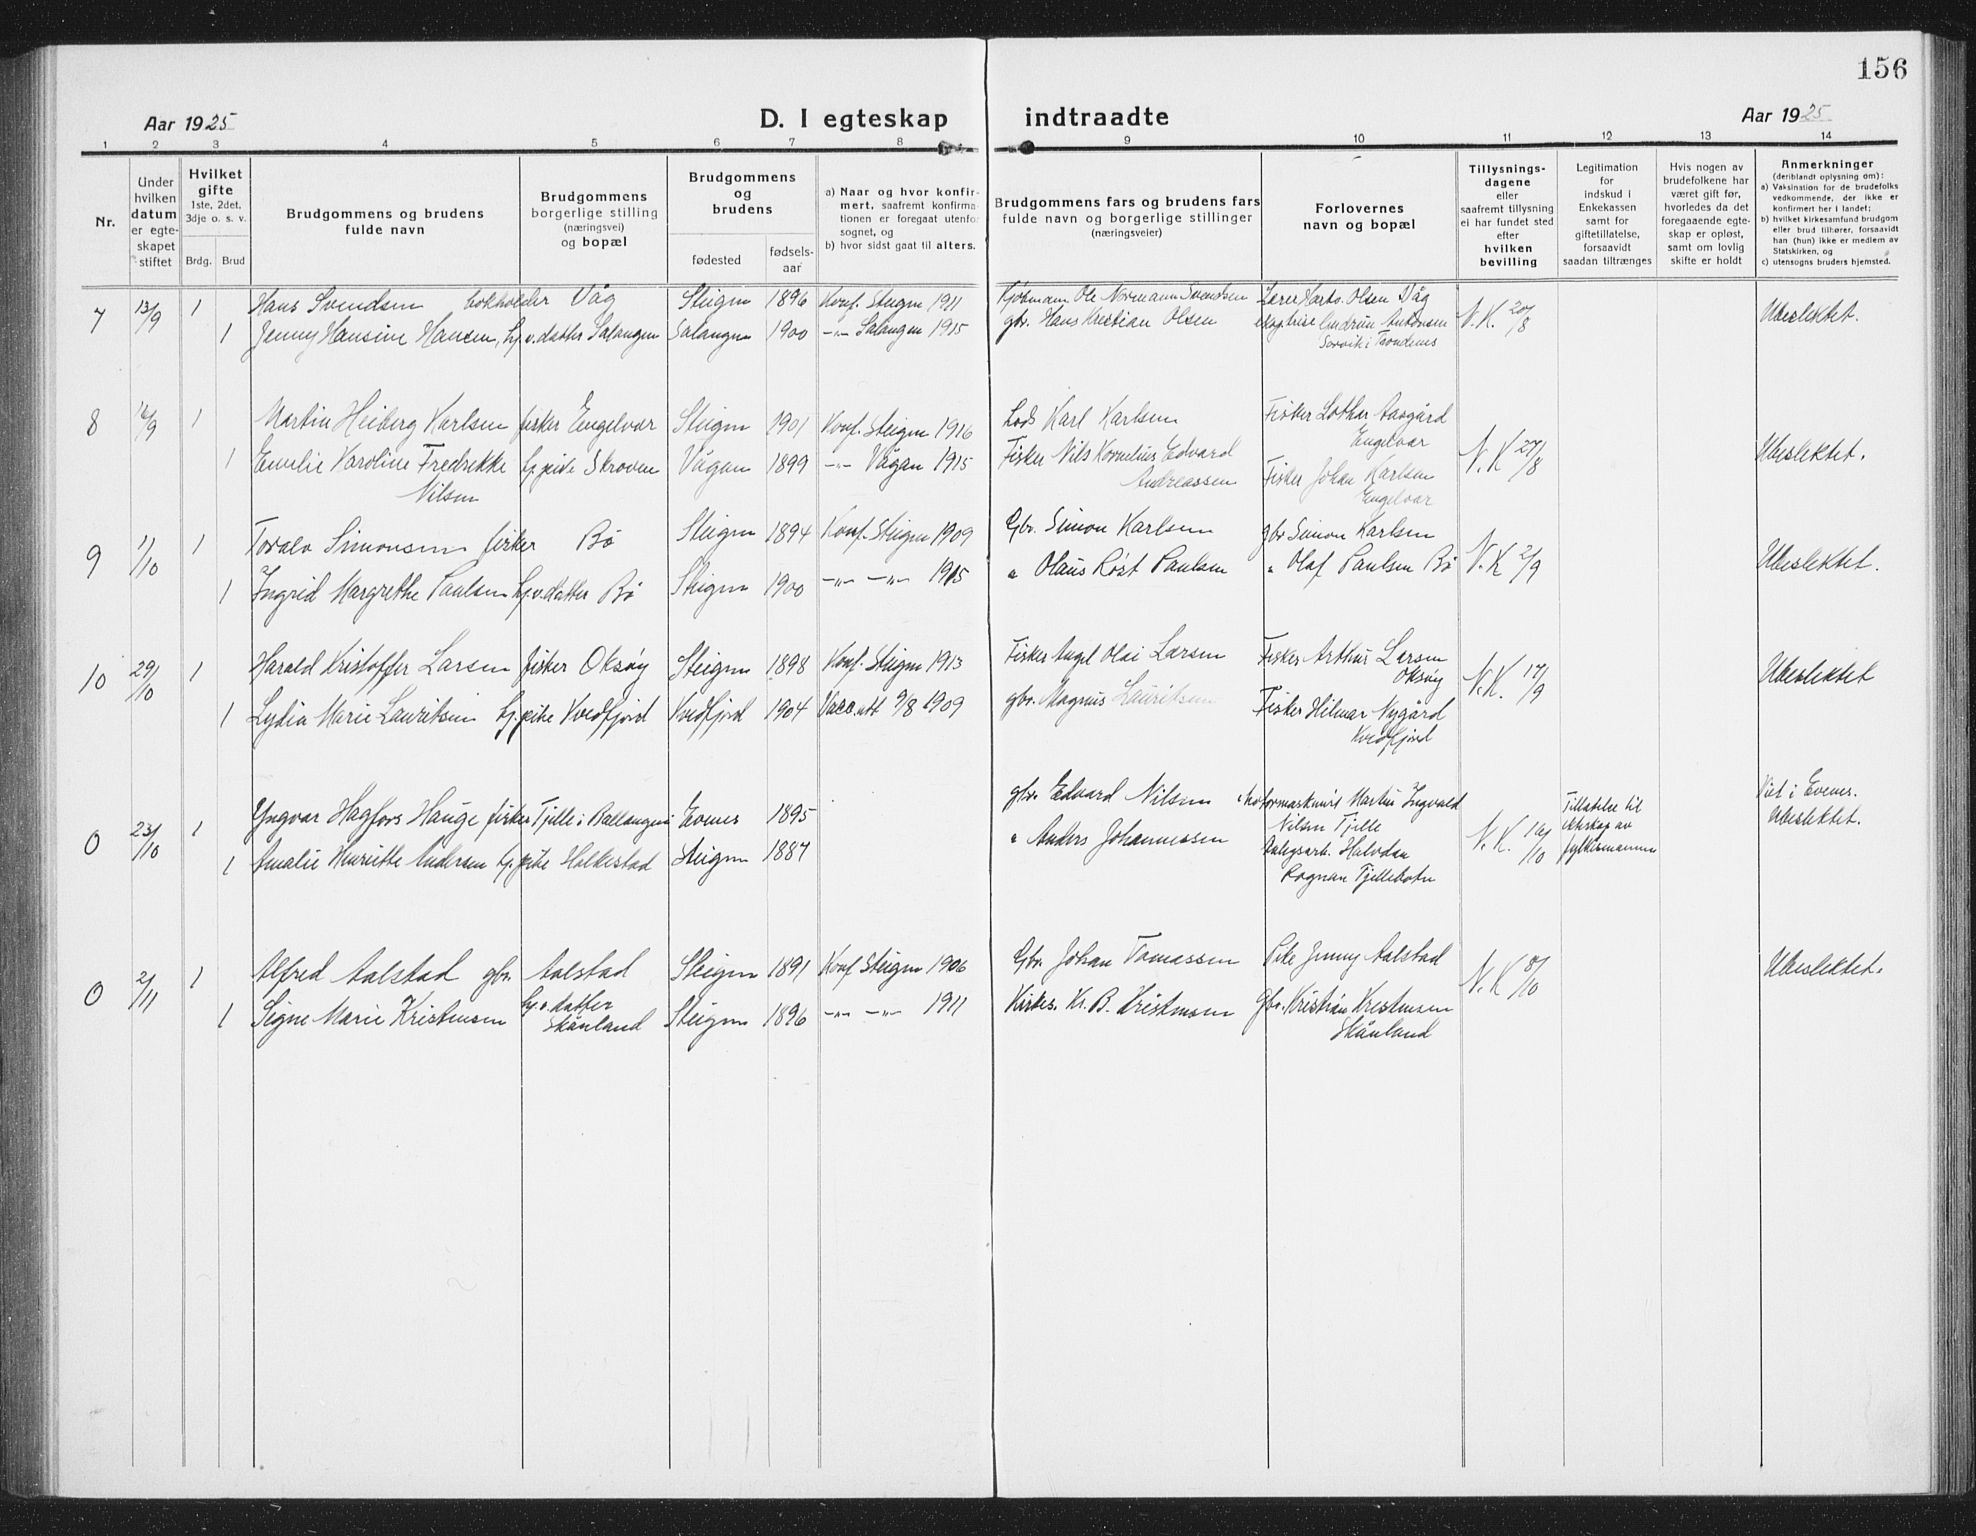 156
Aar 1925
D. I egteskap indtraadte
Aar 1925
1 2 3 4 5 6 7 8 9 10 11 12 13 14
Nr.
Under hvilken datum er egte-skapet stiftet
Hvilket gifte
1ste, 2det, 3dje o. s. v.
Brdg. Brud
Brudgommens og brudens fulde navn
Brudgommens borgerlige stilling (næringsvei) og bopæl
Brudgommens og brudens
fødested
fødsels-aar
a) Naar og hvor konfir-
mert, saafremt konfirma-
tionen er foregaat utenfor
sognet, og
b) hvor sidst gaat til alters.
Brudgommens fars og brudens fars
fulde navn og borgerlige stillinger
(næringsveier)
Forlovernes
navn og bopæl
Tillysnings-
dagene
eller
saafremt tillysning
ei har fundet sted
efter
hvilken
bevilling
Legitimation
for
indskud i
Enkekassen
samt for
giftetillatelse,
forsaavidt
saadan tiltrænges
Hvis nogen av
brudefolkene har
været gift før,
hvorledes da det
foregaaende egte-
skap er opløst,
samt om lovlig
skifte er holdt
Anmerkninger
(deriblandt oplysning om):
a) Vaksination for de brudefolks
vedkommende, der ikke er
konfirmert her i landet;
b) hvilket kirkesamfund brudgom
eller brud tilhører, forsaavidt
han (hun) ikke er medlem av
Statskirken, og
c) utensogns bruders hjemsted.
7 13/9 1 Hans Svendsen bokholder Våg Steigen 1896 Konf. Steigen 1911 Kjøbmann Ole Normann Svendsen Lærer Olsen Våg N.K. 20/8 Ubeslektet.
1 Jenny Hansine Hansen, hj.v. datter Salangen Salangen 1900 -"- Salangen 1915 gbr. Hans Kristian Olsen Antonsen
Sørvik i Trondenes
8 /9 1 Martin Heiberg Karlsen fisker Engelvær Steigen 1901 Konf. Steigen 1916 Lods Karl Karlsen Fisker Lothar Aasgård
Engelvær
1 Emilie Karoline Fredrekke Nilsen hj. pike Skroven Vågan 1899 -"- Vågan 1915 Fisker Nils Kornelius Edvard Andreassen Fisker Johan Karlsen
Engelvær
N.K 27/8 Ubeslektet.
9 11/10 1 Toralv Simonsen fisker Bø Steigen 1894 Konf. Steigen 1909 Gbr. Simon Karlsen gbr Simon Karlsen N.K 2/9 Ubeslektet.
1 Ingrid Margrethe Paulsen hj.v. datter Bø Steigen 1900 -"- -"- 1915 " Olaus Røst Paulsen " Olaf Paulsen Bø
10 29/10 1 Harald Kristoffer Larsen fisker Oksøy Steigen 1898 Konf. Steigen 1913 Fisker Angel Olai Larsen Fisker Arthur Larsen
Oksøy N.K. 17/9 Ubeslektet
1 Lydia Marie Lauritsen hj. pike Kvedfjord Kvedfjord 1904 Vacc. att 9/8 1909 gbr. Magnus Lauritsen Fisker Hilmar Nygård
Kvedfjord
0 23/10 1 Yngvar Hagfors Hauge fisker Tjelle i Ballangen Evenes 1895 gbr. Edvard Nilsen Martin Ingvald
Nilsen Tjelle
N.K. /10 Tillatelse til
ekteskap av
fylkesmannen
Viet i Evenes.
Ubeslektet.
1 Amalie Henriette Andersen hj. pike Holkestad Steigen 1887 " Anders Johannessen Anlegsarb. Halvdan
Rognan Tjellebotn
0 2/11 1 Alfred Aalstad gbr. Aalstad Steigen 1891 Konf Steigen 1906 Gbr. Johan Tomassen Pike Jenny Aalstad N.K 8/10 Ubeslektet.
1 Signe Marie Kristensen hj.v. datter
Skånland Steigen 1896 -"- -"- 1911 Kirkes. Kr. B. Kristensen Gbr. Kristian Kristensen
Skånland